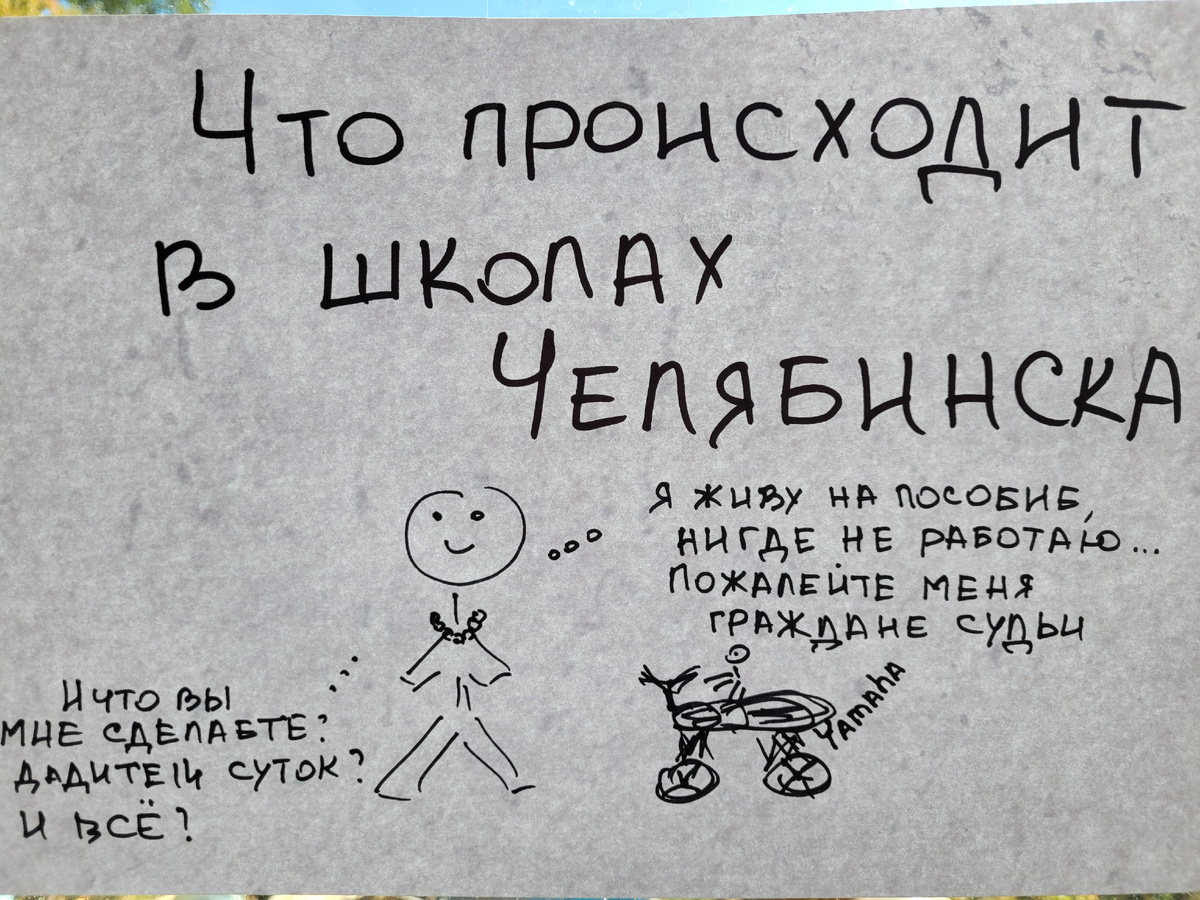 Что происходит
в школах
Челябинска
Я живу на пособие,
нигде не работаю...
Пожалейте меня
граждане судьи
YAMAHA
И что вы
мне сделаете?
Дадите 14 суток?
И всё?